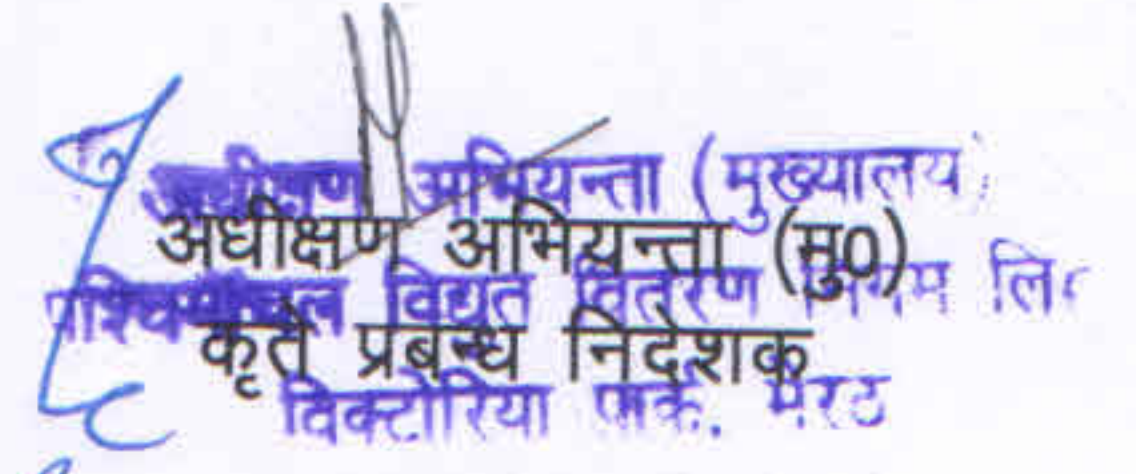 अधीक्षण अभियन्ता (मुख्यालय)
अधीक्षण अभियन्ता (मु0)
पश्चिमांचल विद्युत वितरण निगम लि०
कृते प्रबन्ध निदेशक
विक्टोरिया पार्क, मेरठ